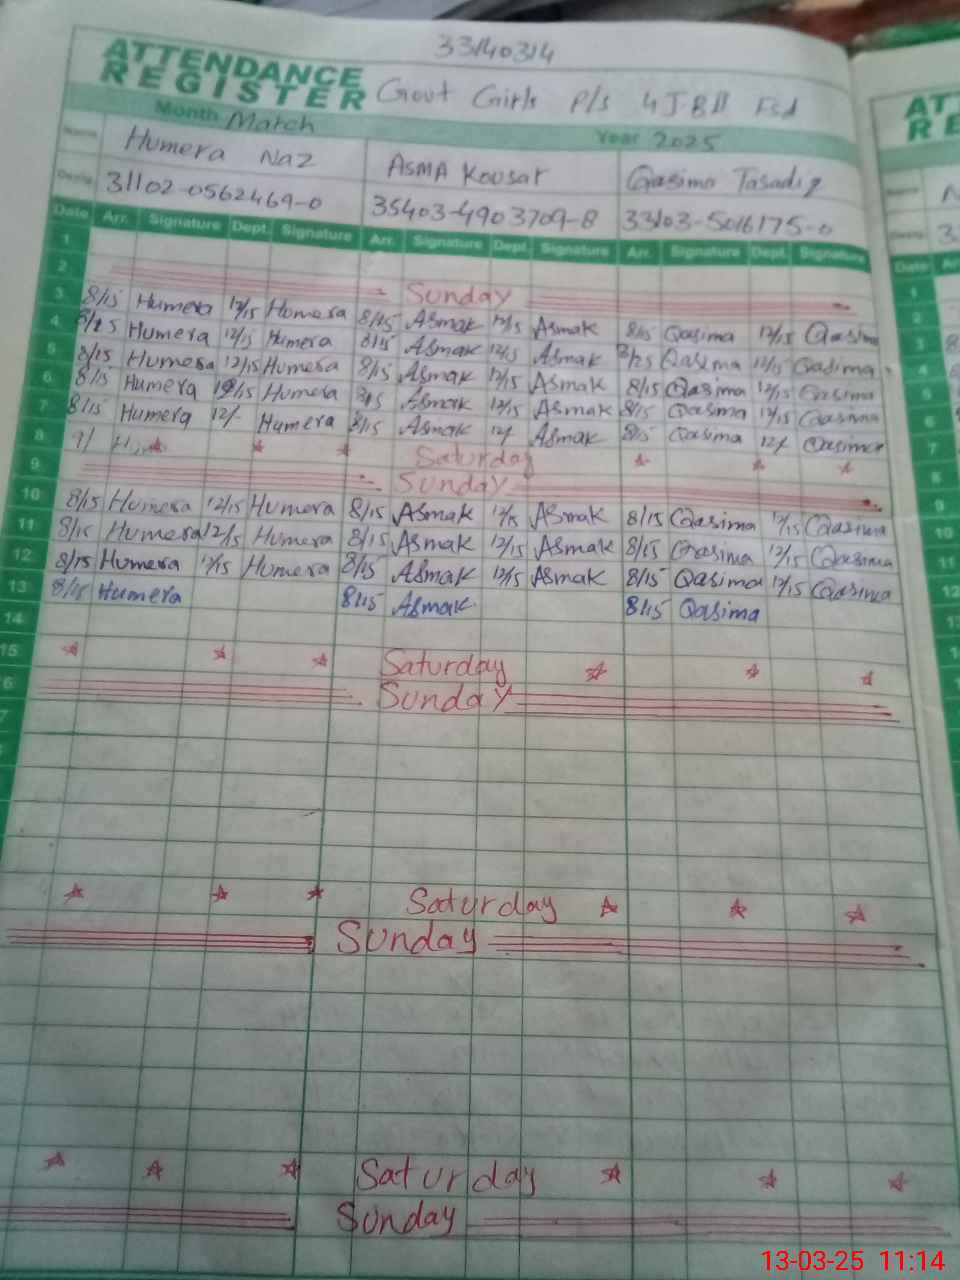 33140314
ATTENDANCE
REGISTER Govt Girls P/S 4 J-B II Fsd
Month March Year 2025
Name Humera Naz ASMA Kousar Qasima Tasadiq
Desig. 31102-0562469-0 35403-4903709-8 33103-5016175-0
Date Arr. Signature Dept. Signature Arr. Signature Dept. Signature Arr. Signature Dept. Signature
1
2 Sunday
3 8/15 Humera 12/15 Humera 8/15 Asmak 12/15 Asmak 8/15 Qasima 12/15 Qasima
4 8/15 Humera 12/15 Humera 8/15 Asmak 12/15 Asmak 8/15 Qasima 12/15 Qasima
5 8/15 Humera 12/15 Humera 8/15 Asmak 12/15 Asmak 8/15 Qasima 12/15 Qasima
6 8/15 Humera 12/15 Humera 8/15 Asmak 12/15 Asmak 8/15 Qasima 12/15 Qasima
7 8/15 Humera 12/- Humera 8/15 Asmak 12/ Asmak 8/15 Qasima 12/ Qasima
8 Saturday
9 Sunday
10 8/15 Humera 12/15 Humera 8/15 Asmak 12/15 Asmak 8/15 Qasima 12/15 Qasima
11 8/15 Humera 12/15 Humera 8/15 Asmak 12/15 Asmak 8/15 Qasima 12/15 Qasima
12 8/15 Humera 12/15 Humera 8/15 Asmak 12/15 Asmak 8/15 Qasima 12/15 Qasima
13 8/15 Humera 8/15 Asmak 8/15 Qasima
14
15 Saturday
6 Sunday
7
Saturday
Sunday
Saturday
Sunday
AT
RE
Date
1
2
3
4
5
6
7
8
9
10
11
12
13-03-25 11:14